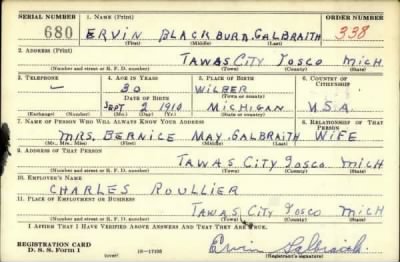 SERIAL NUMBER 1. NAME (Print) ORDER NUMBER
680 ERVIN BLACKBURN GALBRAITH 338
(First) (Middle) (Last)
2. ADDRESS (Print)
TAWAS CITY IOSCO MICH
(Number and street or R. F. D. number) (Town) (County) (State)
3. TELEPHONE 4. AGE IN YEARS 5. PLACE OF BIRTH 6. COUNTRY OF CITIZENSHIP
— 30 WILBER
DATE OF BIRTH (Town or county)
SEPT 2 1910 MICHIGAN U.S.A.
(Exchange) (Number) (Mo.) (Day) (Yr.) (State or country)
7. NAME OF PERSON WHO WILL ALWAYS KNOW YOUR ADDRESS 8. RELATIONSHIP OF THAT PERSON
MRS. BERNICE MAY GALBRAITH WIFE
(Mr., Mrs., Miss) (First) (Middle) (Last)
9. ADDRESS OF THAT PERSON
TAWAS CITY IOSCO MICH
(Number and street or R. F. D. number) (Town) (County) (State)
10. EMPLOYER'S NAME
CHARLES ROULLIER
11. PLACE OF EMPLOYMENT OR BUSINESS
TAWAS CITY IOSCO MICH
(Number and street or R. F. D. number) (Town) (County) (State)
I AFFIRM THAT I HAVE VERIFIED ABOVE ANSWERS AND THAT THEY ARE TRUE.
REGISTRATION CARD
D. S. S. Form 1 (over) 16—17105 Ervin Galbraith